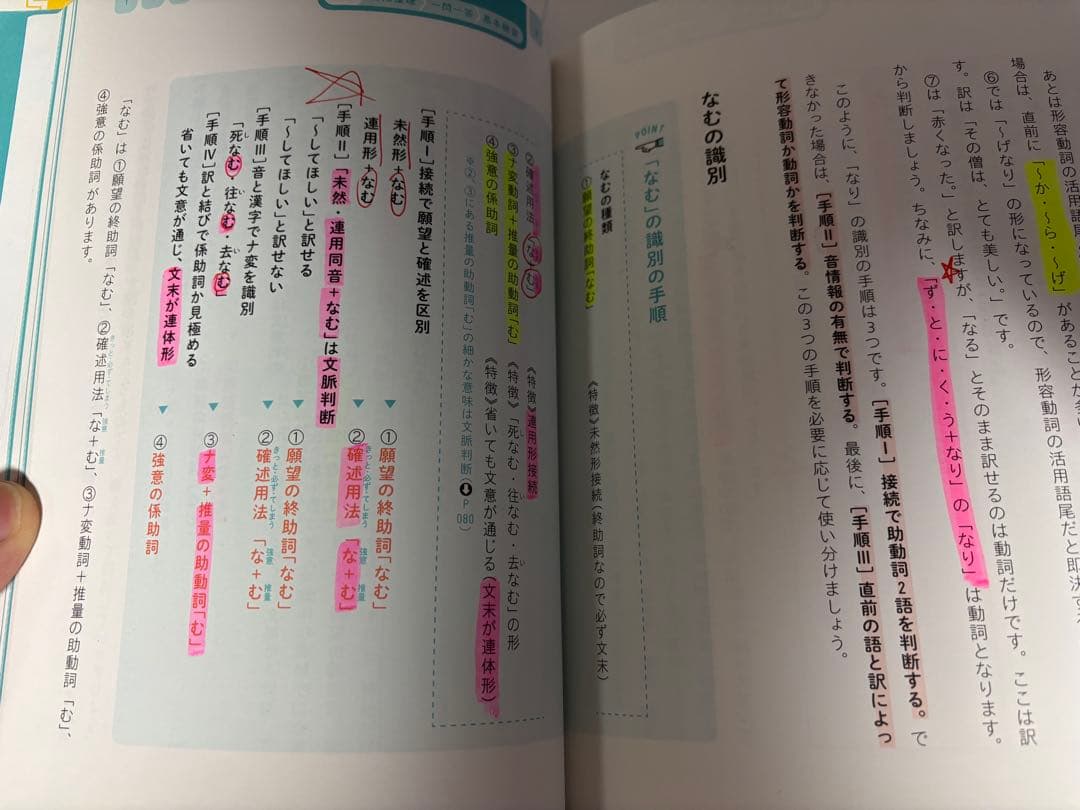 あとは形容動詞の活用語尾
場合は、直前に「〜か・〜ら・〜げ」があることが
⑥では「〜げなり」の形になっているので、形容動詞の活用語尾だと即決
す。訳は「その僧は、とても美しい。」です。
⑦は「赤くなった。」と訳しますが、「なる」とそのまま訳せるのは動詞だけです。ここは訳
から判断しましょう。ちなみに、「ず・と・に・く・う+なり」の「なり」は動詞となります。
このように、「なり」の識別の手順は3つです。[手順Ⅰ]接続で助動詞2語を判断する。で
きなかった場合は、[手順Ⅱ]音情報の有無で判断する。最後に、[手順Ⅲ]直前の語と訳によっ
て形容動詞か動詞かを判断する。この3つの手順を必要に応じて使い分けましょう。
なむの識別
POINT
「なむ」の識別の手順
なむの種類
①願望の終助詞「なむ」 《特徴》未然形接続(終助詞なので必ず文末)
②確述用法「な+む」 《特徴》連用形接続
③ナ変動詞+推量の助動詞「む」 《特徴》「死なむ・往なむ・去なむ」の形
④強意の係助詞 《特徴》省いても文意が通じる(文末が連体形)
※②、③にある推量の助動詞「む」の細かな意味は文脈判断(P080)
[手順Ⅰ]接続で願望と確述を区別
未然形+なむ ▼ ①願望の終助詞「なむ」
連用形+なむ ▼ ②確述用法「な+む」
[手順Ⅱ]「未然・連用同音+なむ」は文脈判断
「〜してほしい」と訳せる ▼ ①願望の終助詞「なむ」
「〜してほしい」と訳せない ▼ ②確述用法「な+む」
[手順Ⅲ]音と漢字でナ変を識別
「死なむ・往なむ・去なむ」 ▼ ③ナ変+推量の助動詞「む」
[手順Ⅳ]訳と結びで係助詞か見極める
省いても文意が通じ、文末が連体形 ▼ ④強意の係助詞
「なむ」は①願望の終助詞「なむ」、②確述用法「な+む」、③ナ変動詞+推量の助動詞「む」、
④強意の係助詞があります。
一問一答
基本練習